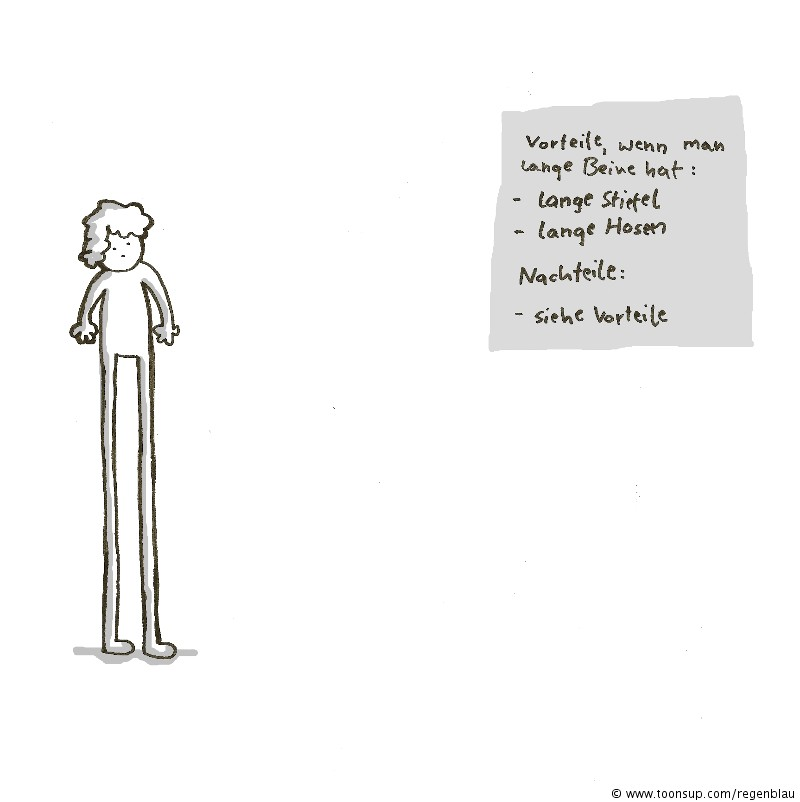 Vorteile, wenn man
lange Beine hat:
- lange Stiefel
- lange Hosen
Nachteile:
- siehe Vorteile
© www.toonsup.com/regenblau